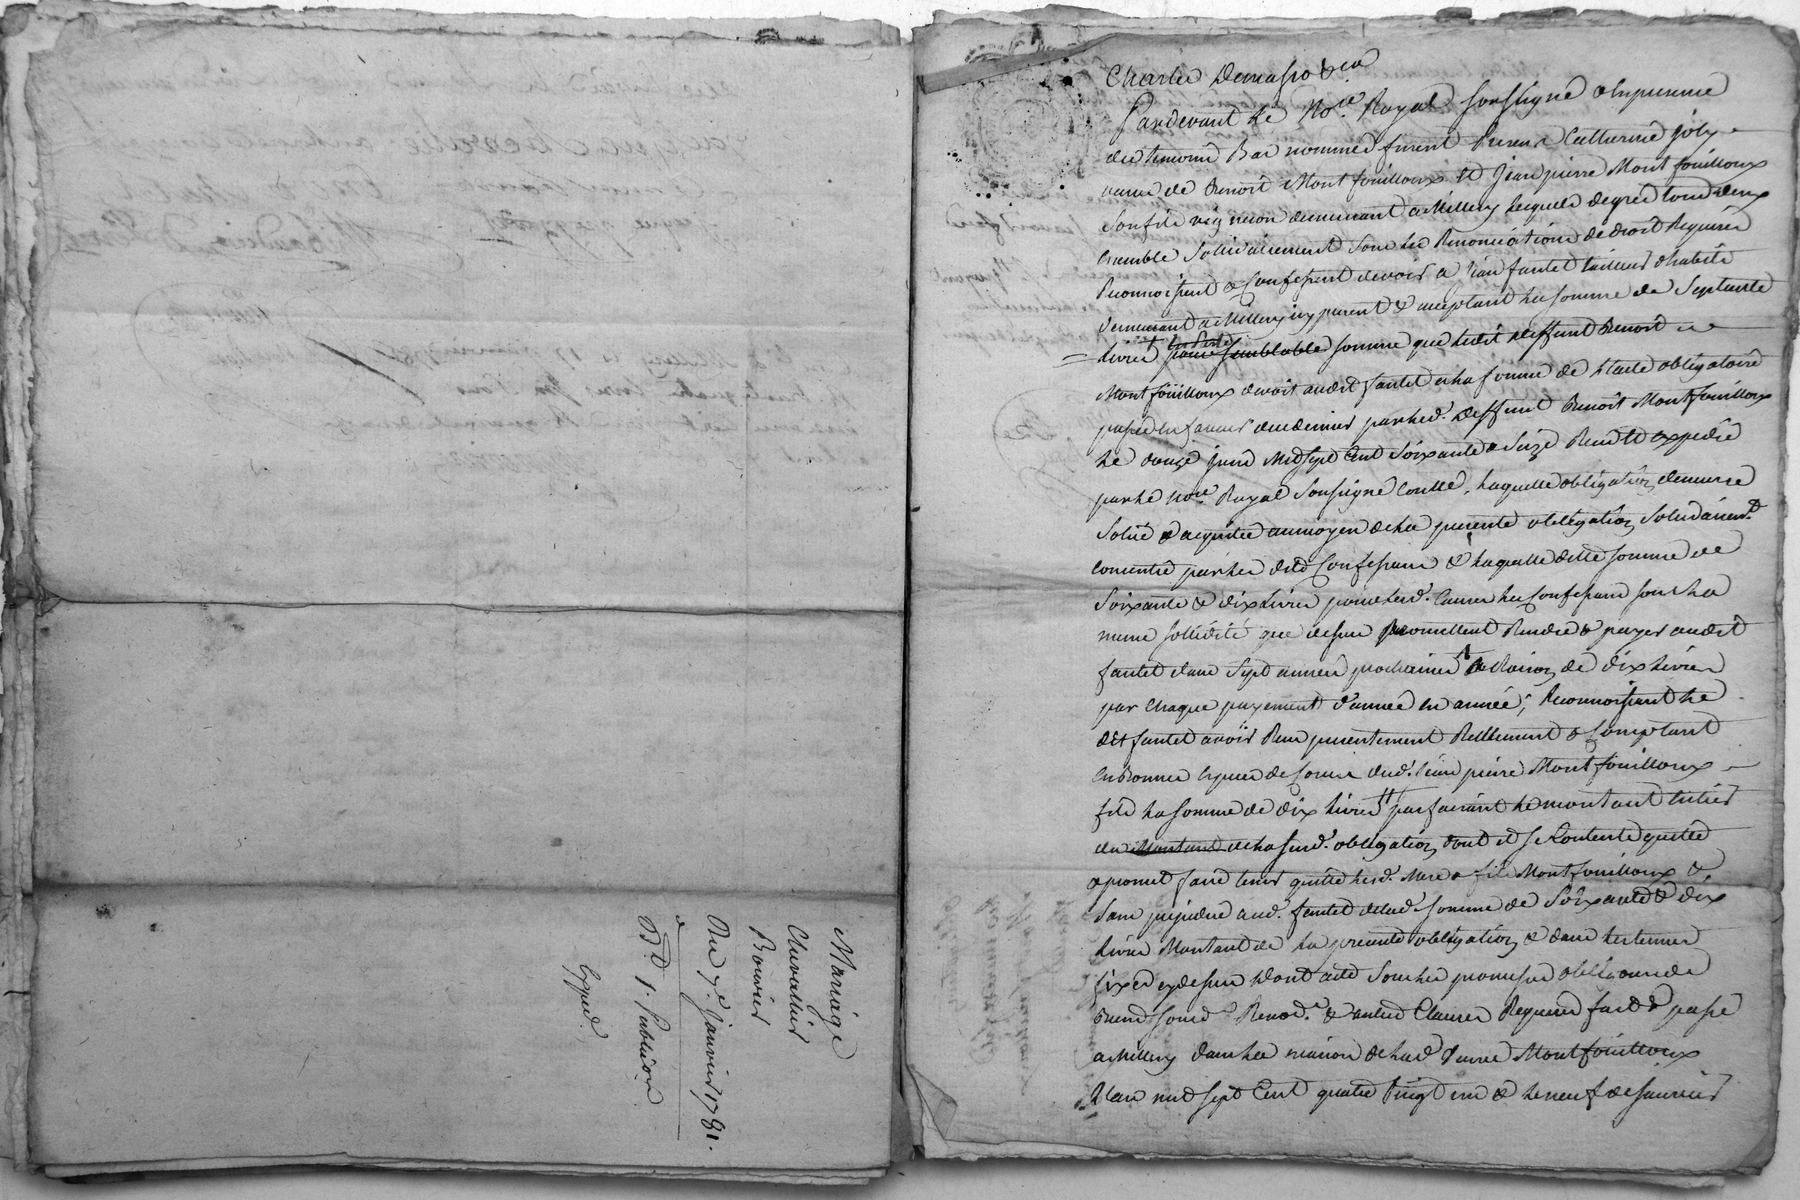 Mariage
Chevallier
Bouvier
Du 7e. janvier 1781.
Bd 1. Publiée
Exped.
Pardevant le Nore. Royal soussigné & en presence
des temoins Bas nommés furent Presens Catherine Joly
veuve de Benoît Montfouilloux et Jean pierre Montfouilloux
son fils vigneron demeurant a Millery lesquels de gred tous deux
ensemble sollidairement sous les Renonciations de droit Requises
Reconnoissent & Confessent devoir a Jean fantet tailleur d'habits
demeurant a Millery icy present & aceptant la somme de Septante
livres pour semblable somme que ledit deffunt Benoît
Montfouilloux devoit audit fantet en la forme de l'acte obligatoire
passé en faveur du dernier par led. deffunt Benoît Montfouilloux
le douze juin Mil sept Cent Soixante & Seize Reçu et expedié
par le nore. Royal Soussigné Controllé, laquelle obligation demeure
Solüe & aquitée au moyen de la presente obligation solidairemt.
consentie par les dits Confessans & laquelle ditte somme de
Soixante & dix livres pour lesd. Causes les Confessans sous la
meme sollidité que dessus promettent Rendre & payer audit
fantet dans Sept années prochaines a Raison de dix livres
par chaque payement d'année en année; Reconnoissant le
dit fantet avoir Reçu presentement Réellement & Comptant
en Bonnes especes de Cours dud. Jean pierre Montfouilloux
fils la somme de dix livres parfaisant le montant entier
du Montant de la susd. obligation dont il se Contente quitte
& promet faire tenir quitte lesd. Mere & fils Montfouilloux &
sans prejudice aud. fantet de lad. somme de Soixante & dix
livres Montant de la presente obligation & dans les termes
fixés cy dessus dont acte Sous les promesses obligations de
Biens sousd. Renod. & autres Clauses Requises fait & passé
a Millery dans la maison de lad. veuve Montfouilloux
l'an mil sept Cent quatre Vingt un & le neuf de janvier